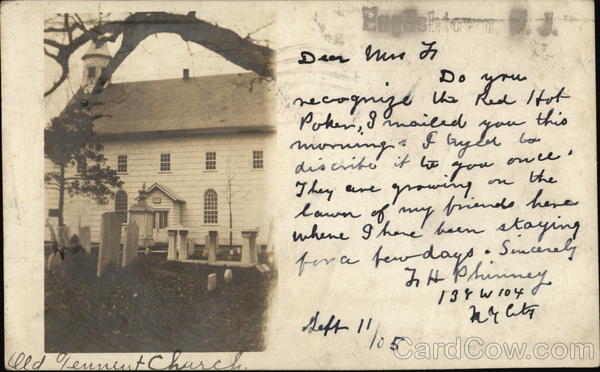 Englishtown N. J.
Dear Mrs Fr
Do you
recognize the Red Hot
Poker, I mailed you this
morning. I tryed to
discribe it to you once.
They are growing on the
lawn of my friends here
where I have been staying
for a few days. Sincerely
F H Phinney
138 W 104
N Y City
Sept 11/05
Old Tennent Church.
CardCow.com